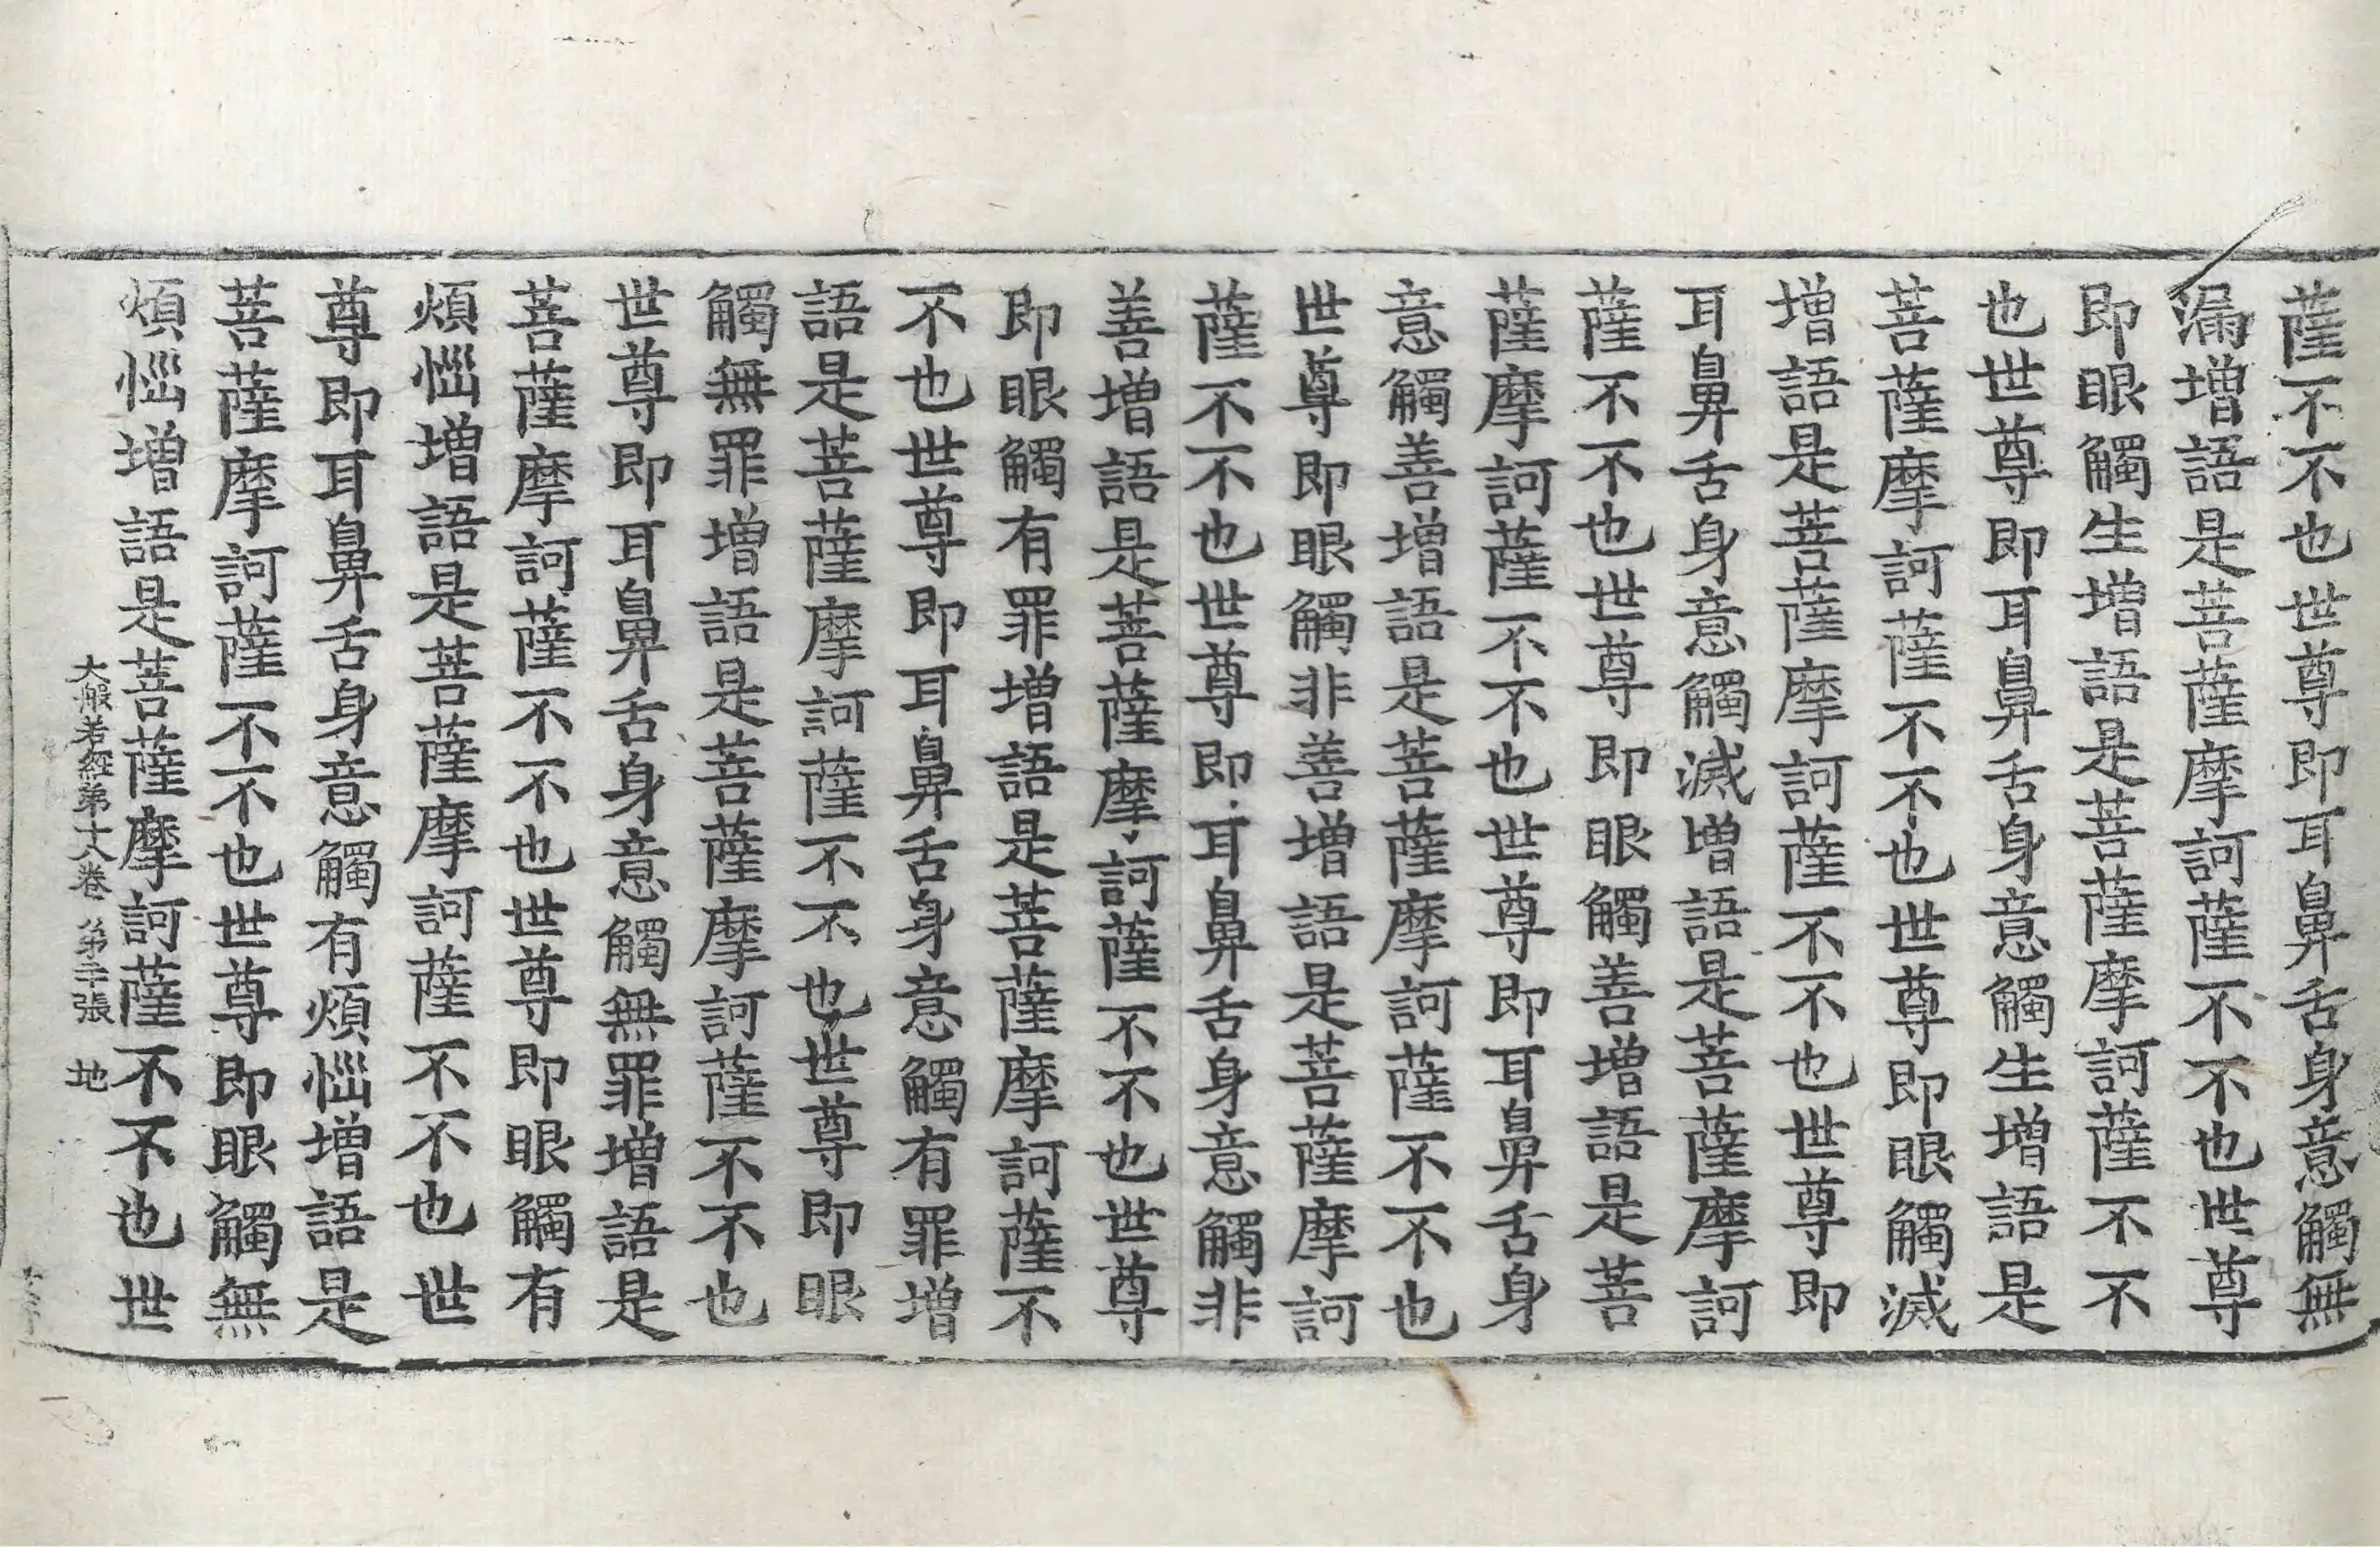 薩不不也世尊即耳鼻舌身意觸無
漏增語是菩薩摩訶薩不不也世尊
即眼觸生增語是菩薩摩訶薩不不
也世尊即耳鼻舌身意觸生增語是
菩薩摩訶薩不不也世尊即眼觸滅
增語是菩薩摩訶薩不不也世尊即
耳鼻舌身意觸滅增語是菩薩摩訶
薩不不也世尊即眼觸善增語是菩
薩摩訶薩不不也世尊即耳鼻舌身
意觸善增語是菩薩摩訶薩不不也
世尊即眼觸非善增語是菩薩摩訶
薩不不也世尊即耳鼻舌身意觸非
善增語是菩薩摩訶薩不不也世尊
即眼觸有罪增語是菩薩摩訶薩不
不也世尊即耳鼻舌身意觸有罪增
語是菩薩摩訶薩不不也世尊即眼
觸無罪增語是菩薩摩訶薩不不也
世尊即耳鼻舌身意觸無罪增語是
菩薩摩訶薩不不也世尊即眼觸有
煩惱增語是菩薩摩訶薩不不也世
尊即耳鼻舌身意觸有煩惱增語是
菩薩摩訶薩不不也世尊即眼觸無
煩惱增語是菩薩摩訶薩不不也世
大般若經第十八卷 第二十張 地